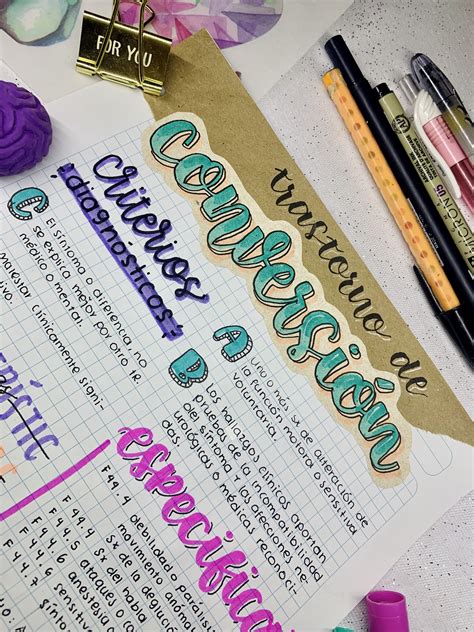 FOR YOU
trastorno de
conversión
criterios
diagnósticos
A
Uno o más sx de alteración de
la función motora o sensitiva
voluntaria.
B
Los hallazgos clínicos aportan
pruebas de la incompatibilidad
del síntoma y las afecciones ne
urológicas o médicas reconoci-
das.
C
El síntoma o diferencia no
se explica mejor por otro tr.
médico o mental.
malestar clínicamente signi-
especific
F 44.4
F 44.4
F 44.4
F 44.4
F 44.5
F 44.6
F 44.7
debilidad o parálisis
movimiento anóma
sx de la deglució
sx del habla
ataques o co
anestesia o
sensitiv
sínto
MICRON 05